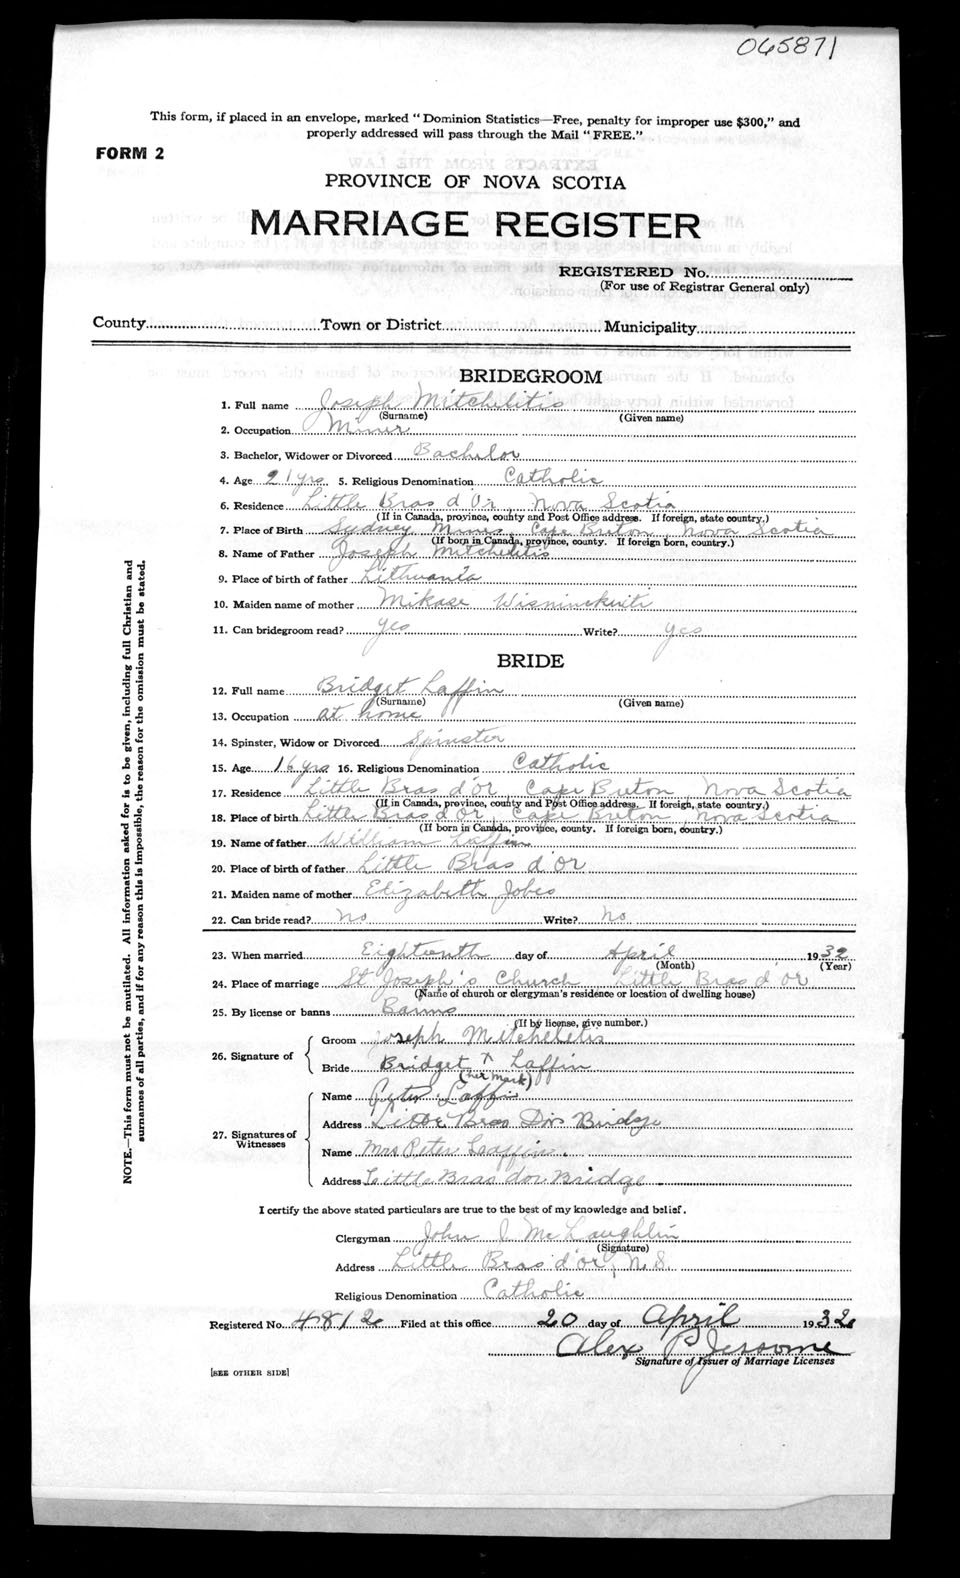 065871
This form, if placed in an envelope, marked "Dominion Statistics—Free, penalty for improper use $300," and
properly addressed will pass through the Mail "FREE."
FORM 2
PROVINCE OF NOVA SCOTIA
MARRIAGE REGISTER
REGISTERED No.
(For use of Registrar General only)
County Town or District Municipality
BRIDEGROOM
1. Full name Joseph Mitchelitis
(Surname) (Given name)
2. Occupation Miner
3. Bachelor, Widower or Divorced Bachelor
4. Age 21 yrs. 5. Religious Denomination Catholic
6. Residence Little Bras d'Or, Nova Scotia
(If in Canada, province, county and Post Office address. If foreign, state country.)
7. Place of Birth Sydney Mines Cape Breton, Nova Scotia
(If born in Canada, province, county. If foreign born, country.)
8. Name of Father Joseph Mitchelitis
9. Place of birth of father Lithuania
10. Maiden name of mother
11. Can bridegroom read? yes Write? yes
BRIDE
12. Full name Bridget Laffin
(Surname) (Given name)
13. Occupation at home
14. Spinster, Widow or Divorced Spinster
15. Age 16 yrs 16. Religious Denomination Catholic
17. Residence Little Bras d'or, Cape Breton, Nova Scotia
(If in Canada, province, county and Post Office address. If foreign, state country.)
18. Place of birth Little Bras d'or, Cape Breton Nova Scotia
(If born in Canada, province, county. If foreign born, country.)
19. Name of father William Laffin
20. Place of birth of father Little Bras d'or
21. Maiden name of mother Elizabeth Jobes
22. Can bride read? No Write? No
23. When married Eighteenth day of April 1932
(Month) (Year)
24. Place of marriage St Joseph's Church Little Bras d'or
(Name of church or clergyman's residence or location of dwelling house)
25. By license or banns Banns
(If by license, give number.)
26. Signature of
Groom Joseph Mitchelitis
Bride Bridget X Laffin
(her mark)
27. Signatures of Witnesses
Name Peter Laffin
Address Little Bras Dor Bridge
Name Mrs Peter Laffin.
Address Little Bras dor Bridge
I certify the above stated particulars are true to the best of my knowledge and belief.
Clergyman John J. McLaughlin
(Signature)
Address Little Bras d'or, N.S.
Religious Denomination Catholic
Registered No. 4812 Filed at this office 20 day of April 1932
Alex P Jessome
Signature of Issuer of Marriage Licenses
[SEE OTHER SIDE]
NOTE.—This form must not be mutilated. All information asked for is to be given, including full Christian and
surnames of all parties, and if for any reason this is impossible, the reason for the omission must be stated.